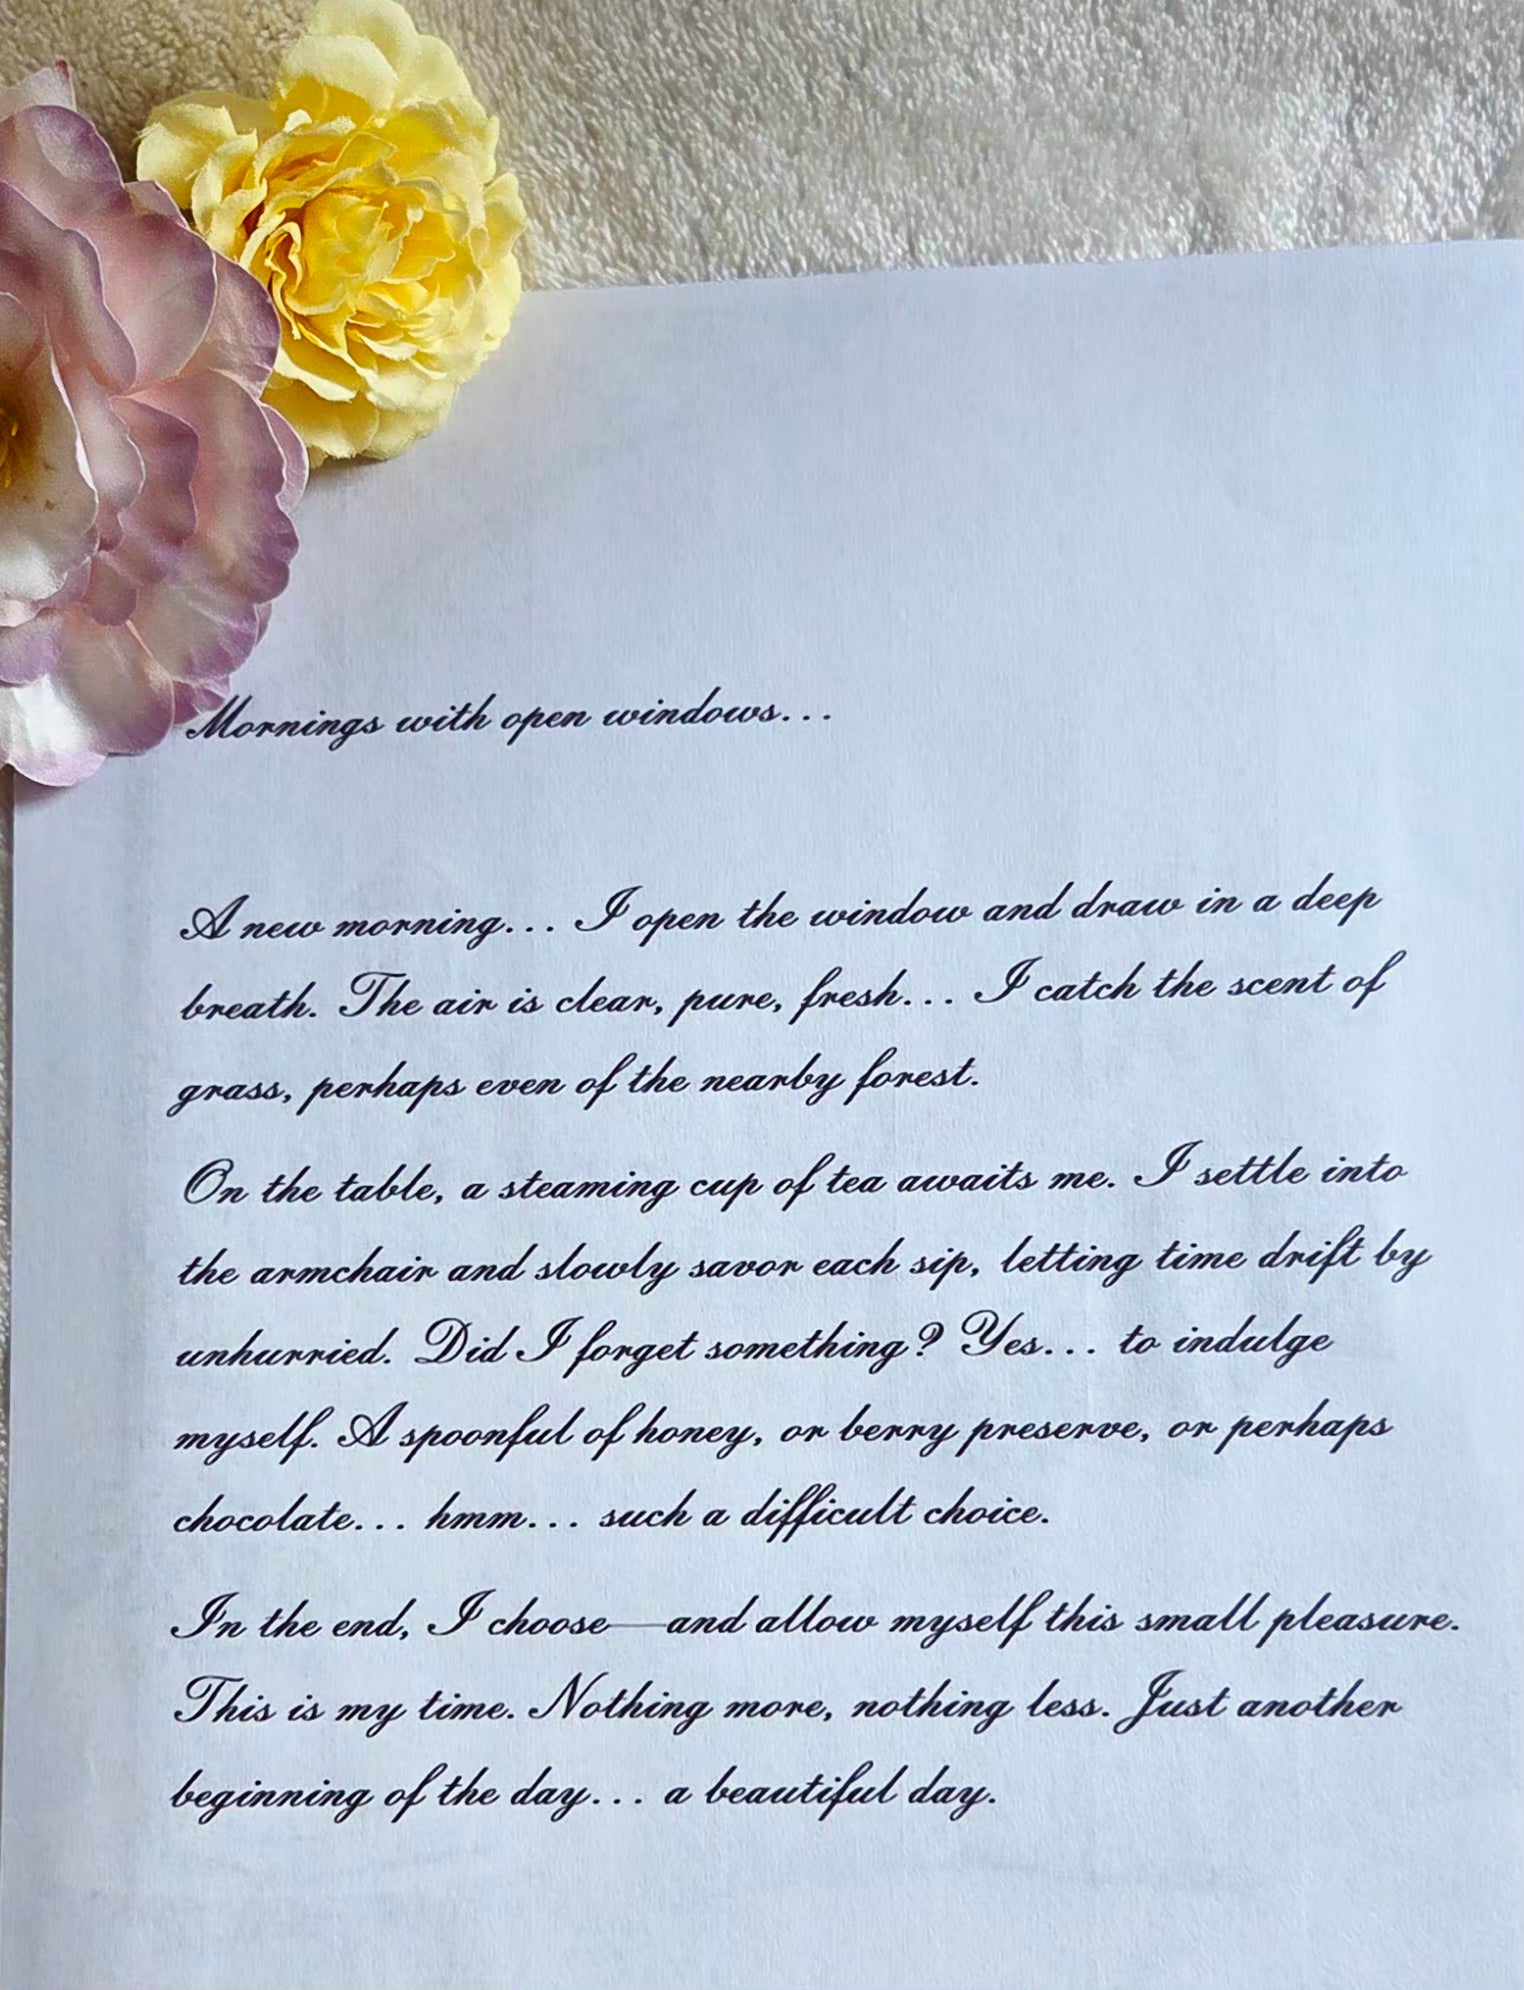 Mornings with open windows...
A new morning... I open the window and draw in a deep
breath. The air is clear, pure, fresh... I catch the scent of
grass, perhaps even of the nearby forest.
On the table, a steaming cup of tea awaits me. I settle into
the armchair and slowly savor each sip, letting time drift by
unhurried. Did I forget something? Yes... to indulge
myself. A spoonful of honey, or berry preserve, or perhaps
chocolate... hmm... such a difficult choice.
In the end, I choose—and allow myself this small pleasure.
This is my time. Nothing more, nothing less. Just another
beginning of the day... a beautiful day.